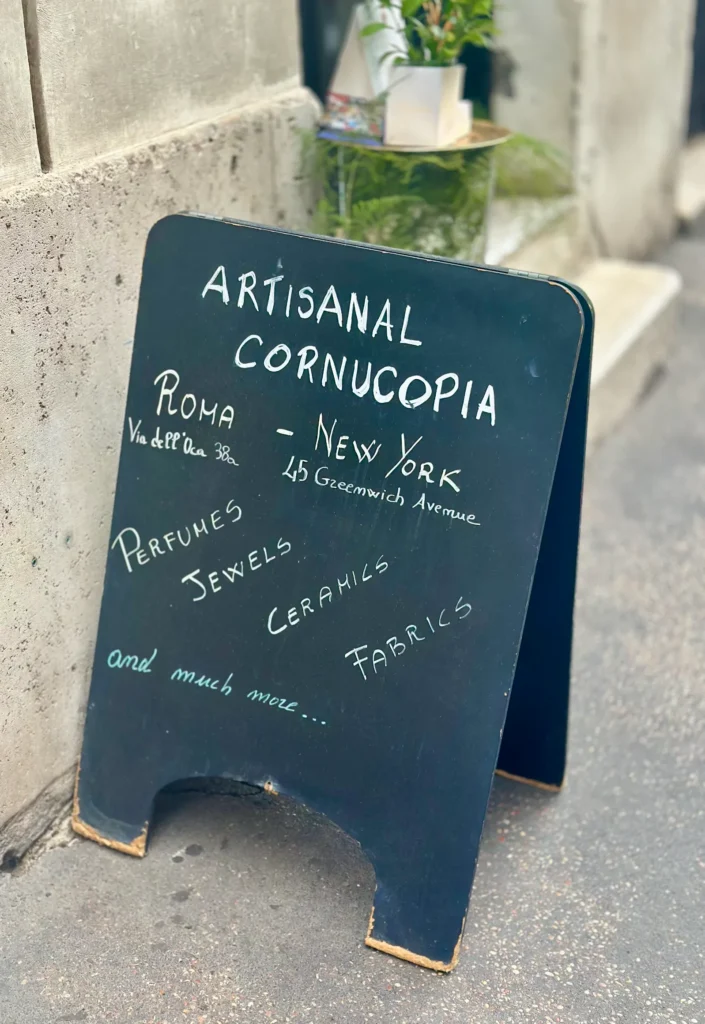 ARTISANAL
CORNUCOPIA
ROMA - NEW YORK
Via dell'Oca 38a
45 Greenwich Avenue
PERFUMES
JEWELS
CERAMICS
FABRICS
and much more...